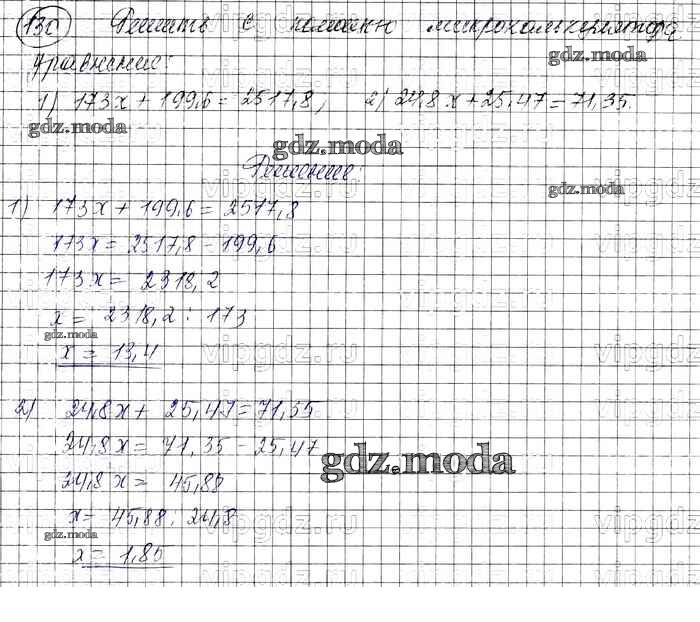 130 Решить с помощью микрокалькулятора
gdz.moda
уравнение:
1) 173x + 199,6 = 2517,8, 2) 24,8x + 25,47 = 71,35.
gdz.moda
gdz.moda
Решение:
gdz.moda
vipgdz.ru
1) 173x + 199,6 = 2517,8
173x = 2517,8 - 199,6
173x = 2318,2
x = 2318,2 : 173
gdz.moda
x = 13,4
vipgdz.ru
2) 24,8x + 25,47 = 71,35
24,8x = 71,35 - 25,47
gdz.moda
24,8x = 45,88
x = 45,88 : 24,8
gdz.moda
vipgdz.ru
x = 1,85